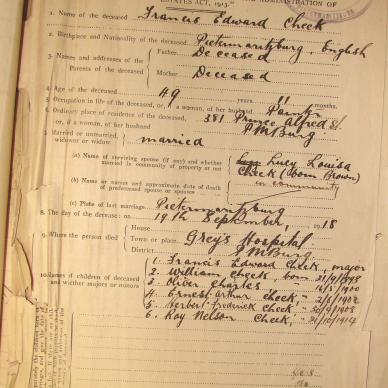 ADMINISTRATION OF
ESTATES ACT, 1913.
1. Name of the deceased Francis Edward Cheek
2. Birthplace and Nationality of the deceased Pietermaritzburg, English
3. Names and addresses of the Parents of the deceased
Father Deceased
Mother Deceased
4. Age of the deceased 49 years 11 months.
5. Occupation in life of the deceased, or, if a woman, of her husband
6. Ordinary place of residence of the deceased, or, if a woman, of her husband 381 Prince Alfred St.
PMBurg
7. Married or unmarried, widower or widow married
(a) Name of surviving spouse (if any) and whether married in community of property or not Lucy Louisa
Cheek (born Brown)
in community
(b) Name or names and approximate date of death of predeceased spouse or spouses
(c) Place of last marriage. Pietermaritzburg
8. The day of the decease: on 19th September, 1918
9. Where the person died
House
Town or place Grey's Hospital
District PMBurg
10. Names of children of deceased and whether majors or minors
1. Francis Edward Cheek, major
2. William Cheek, born
3. Oliver Charles " 1900
4. Ernest Arthur Cheek, " 1902
5. Herbert Frederick Cheek "
6. Roy Nelson Cheek, " 1914